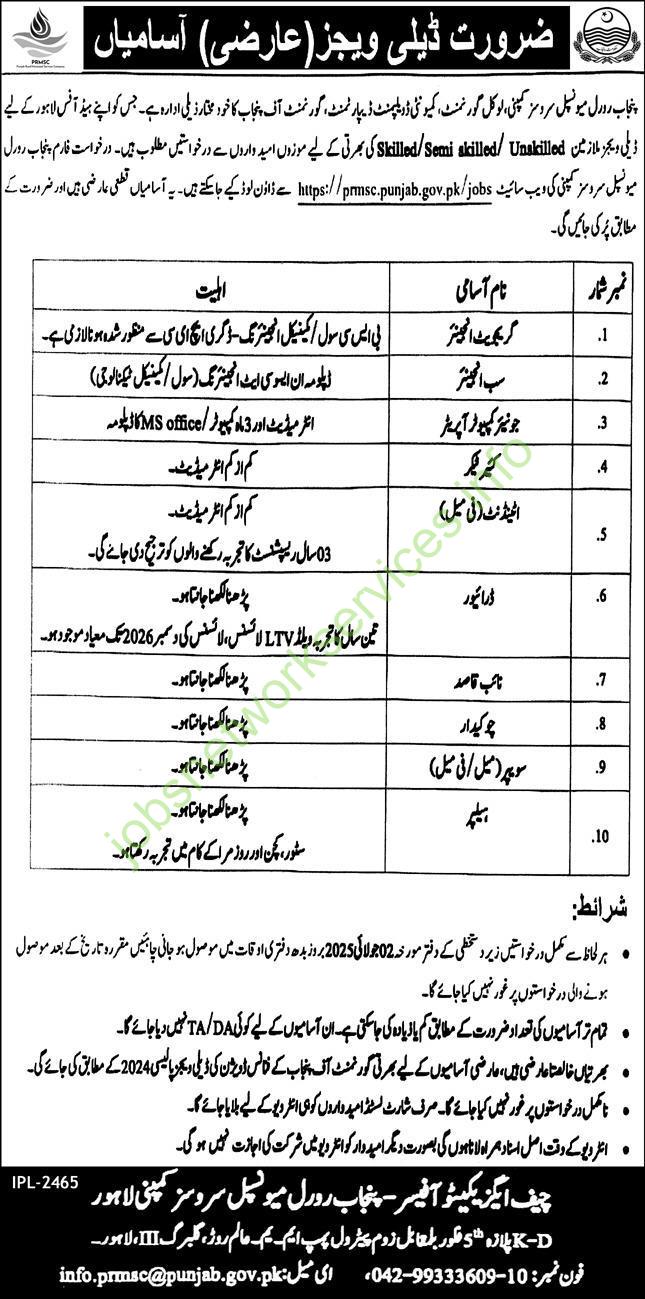 PRMSC
Punjab Rural Municipal Services Company
ضرورت ڈیلی ویجز (عارضی) آسامیاں
پنجاب رورل میونسپل سروسز کمپنی، لوکل گورنمنٹ، کمیونٹی ڈویلپمنٹ ڈیپارٹمنٹ، گورنمنٹ آف پنجاب کا خود مختار ذیلی ادارہ ہے۔ جس کو اپنے ہیڈ آفس لاہور کے لیے
ڈیلی ویجز ملازمین Skilled/Semi skilled/ Unskilled کی بھرتی کے لیے موزوں امیدواروں سے درخواستیں مطلوب ہیں۔ درخواست فارم پنجاب رورل
میونسپل سروسز کمپنی کی ویب سائیٹ https://prmsc.punjab.gov.pk/jobs سے ڈاؤن لوڈ کیے جاسکتے ہیں۔ یہ آسامیاں قطعی عارضی ہیں اور ضرورت کے
مطابق پُر کی جائیں گی۔
نمبر شمار نام آسامی اہلیت
1. گریجویٹ انجینئر بی ایس سی سول/مکینیکل انجینئرنگ- ڈگری ایچ ای سی سے منظور شدہ ہونا لازمی ہے۔
2. سب انجینئر ڈپلومہ ان ایسوسی ایٹ انجینئرنگ (سول/مکینیکل ٹیکنالوجی)
3. جونیئر کمپیوٹر آپریٹر انٹرمیڈیٹ اور 3 ماہ کمپیوٹر/MS office کا ڈپلومہ
4. کیئر ٹیکر کم از کم انٹرمیڈیٹ۔
5. اٹینڈنٹ (فی میل) کم از کم انٹرمیڈیٹ۔
03 سال ریسپشنسٹ کا تجربہ رکھنے والوں کو ترجیح دی جائے گی۔
6. ڈرائیور پڑھنا لکھنا جانتا ہو۔
تین سال کا تجربہ ویلڈ LTV لائسنس، لائسنس کی دسمبر 2026 تک معیاد موجود ہو۔
7. نائب قاصد پڑھنا لکھنا جانتا ہو۔
8. چوکیدار پڑھنا لکھنا جانتا ہو۔
9. سویپر (میل/فی میل) پڑھنا لکھنا جانتا ہو۔
10. ہیلپر پڑھنا لکھنا جانتا ہو۔
سٹور، کچن اور روزمرا کے کام میں تجربہ رکھتا ہو۔
شرائط:
• ہر لحاظ سے مکمل درخواستیں زیر دستخطی کے دفتر مورخہ 02 جولائی 2025 بروز بدھ دفتری اوقات میں موصول ہو جانی چاہئیں مقررہ تاریخ کے بعد موصول
ہونے والی درخواستوں پر غور نہیں کیا جائے گا۔
• تمام تر آسامیوں کی تعداد ضرورت کے مطابق کم یا زیادہ کی جاسکتی ہے۔ ان آسامیوں کے لیے کوئی TA/DA نہیں دیا جائے گا۔
• بھرتیاں خالصتا عارضی ہیں، عارضی آسامیوں کے لیے بھرتی گورنمنٹ آف پنجاب کے فنانس ڈویژن کی ڈیلی ویجز پالیسی 2024 کے مطابق کی جائے گی۔
• نامکمل درخواستوں پر غور نہیں کیا جائے گا۔ صرف شارٹ لسٹڈ امیدواروں کو ہی انٹرویو کے لیے بلایا جائے گا۔
• انٹرویو کے وقت اصل اسناد ہمراہ لانا ہوں گی بصورت دیگر امیدوار کو انٹرویو میں شرکت کی اجازت نہیں ہو گی۔
IPL-2465
چیف ایگزیکیٹو آفیسر - پنجاب رورل میونسپل سروسز کمپنی لاہور
K-D پلازہ 5th فلور بلمقابل زوم پیٹرول پمپ ایم۔ایم۔عالم روڑ، گلبرگ III، لاہور۔
فون نمبر: 10-042-99333609، ای میل: info.prmsc@punjab.gov.pk
jobsnetworkservices.info